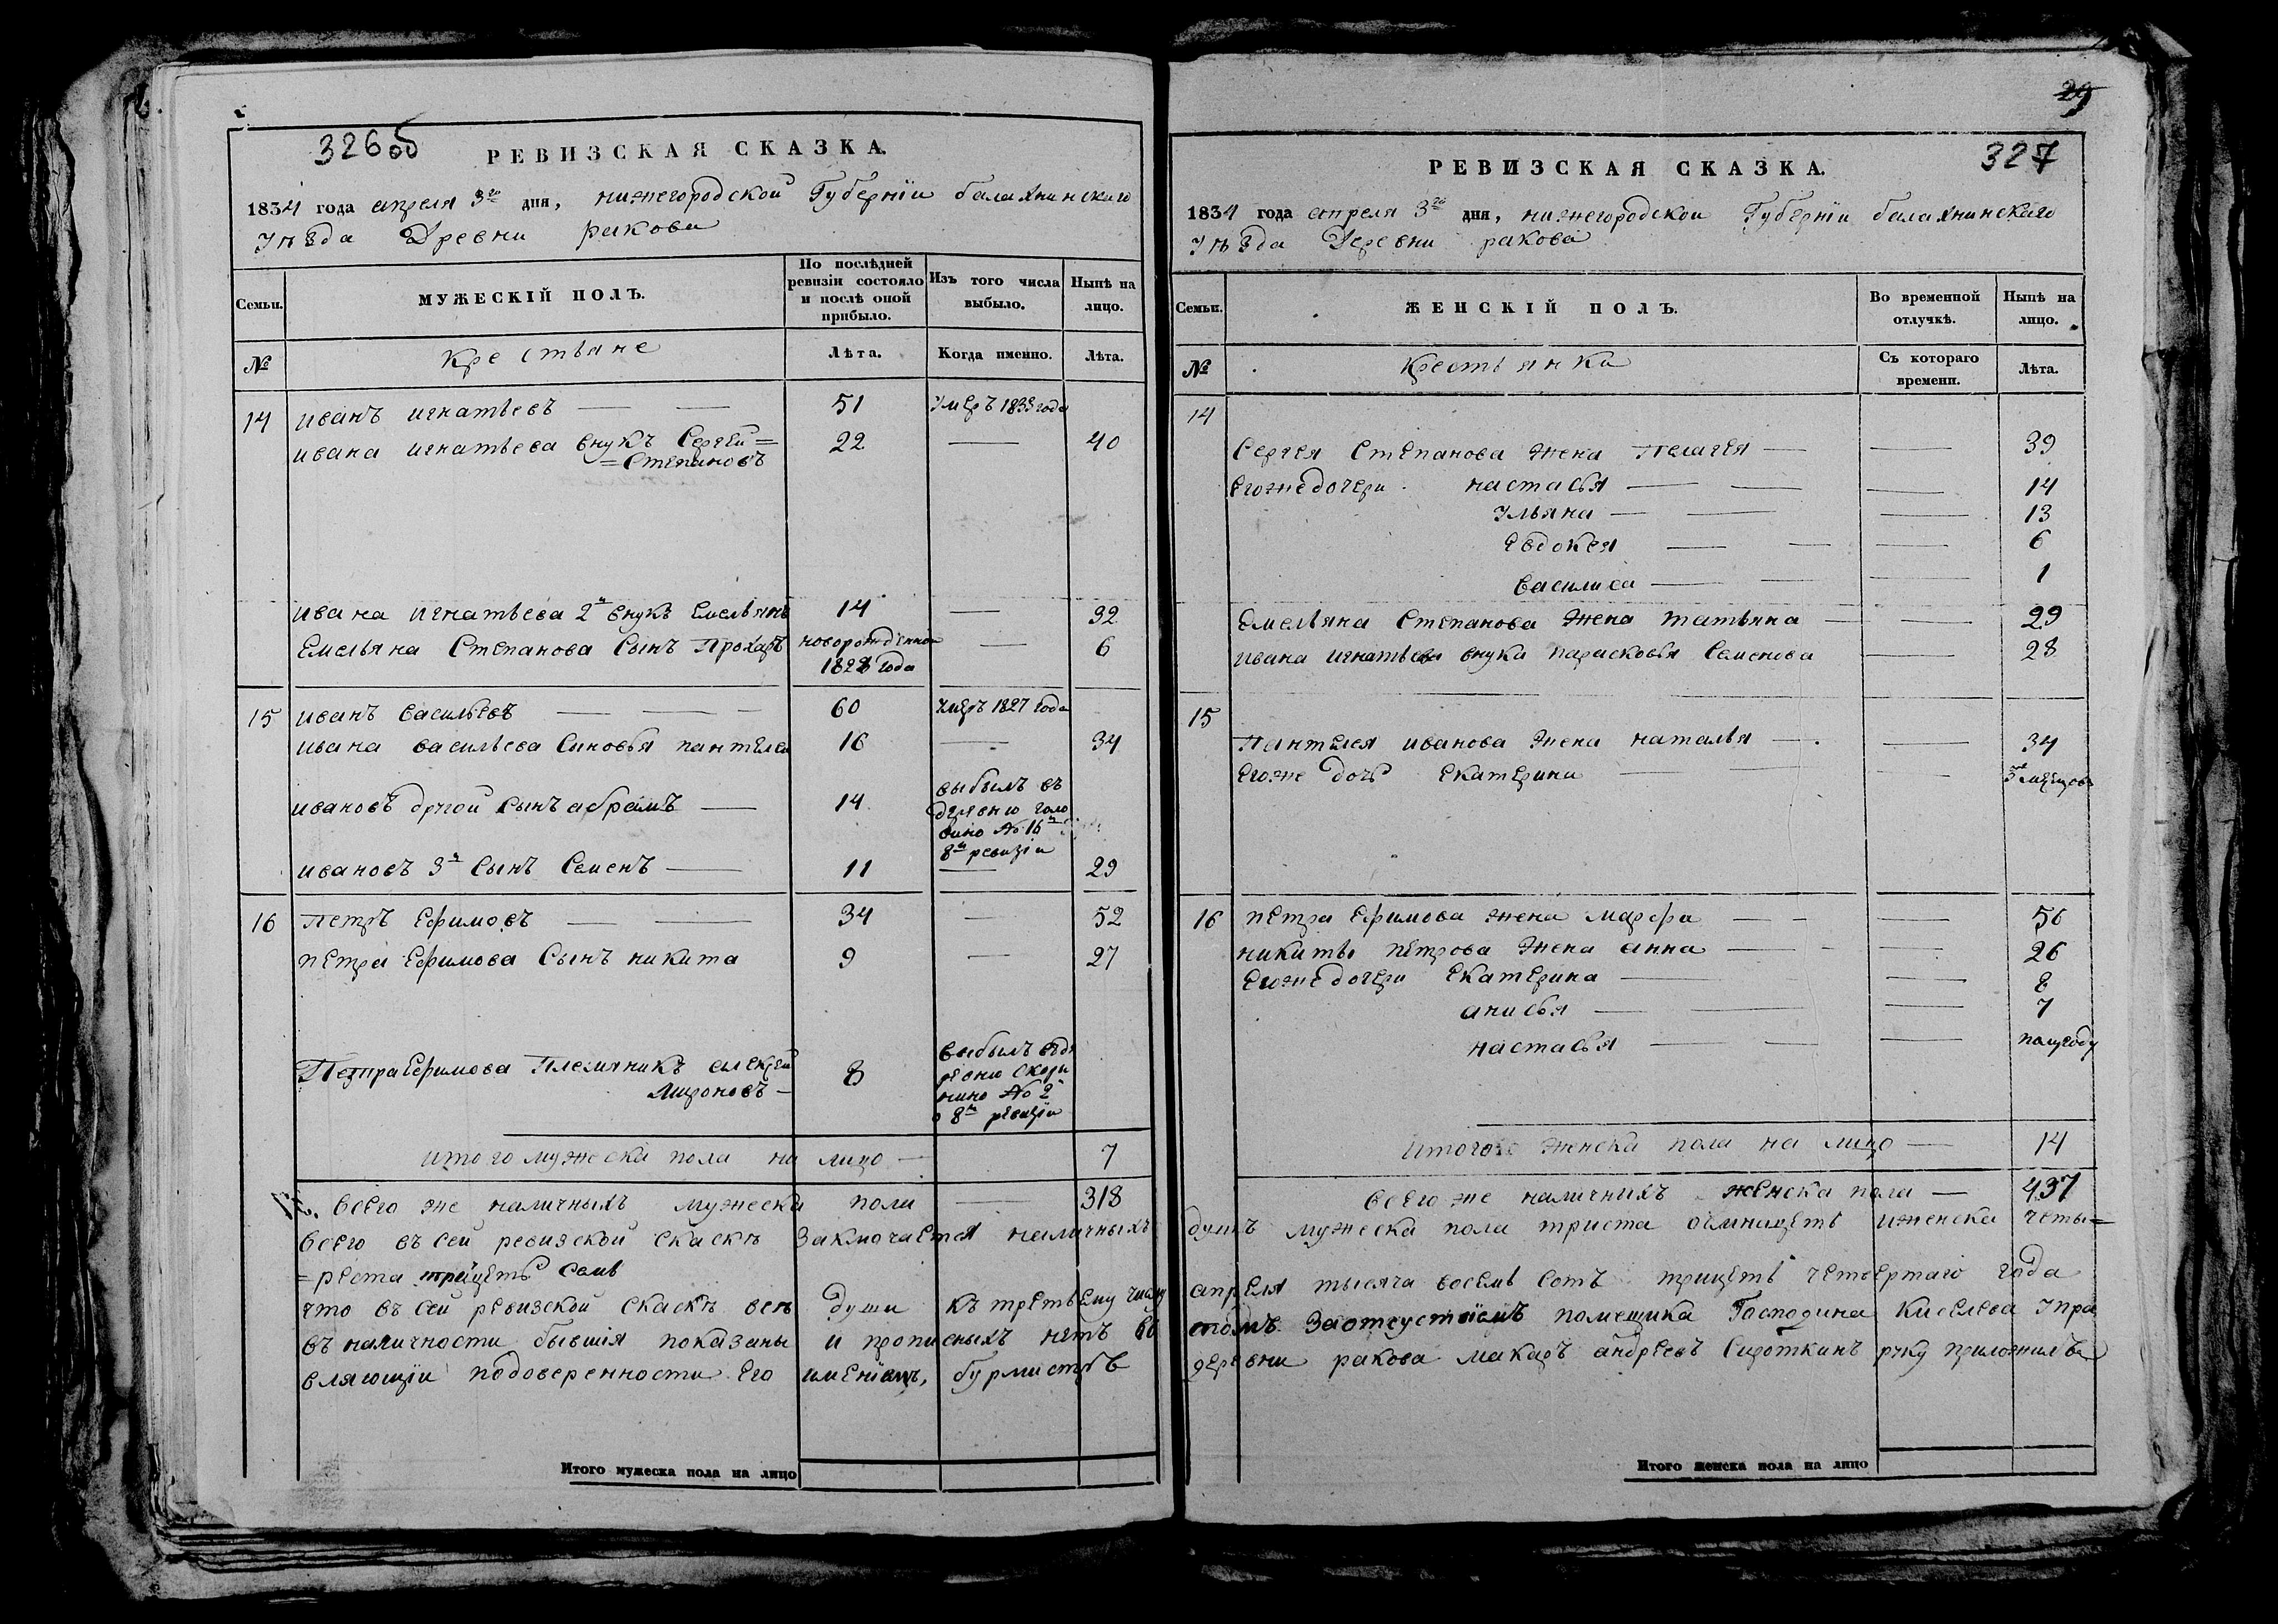 326 об
РЕВИЗСКАЯ СКАЗКА.
1834 года апреля 3го дня, нижегородской Губернїи балахнинскаго
Уѣзда Древни ракова
Семьи.
МУЖЕСКІЙ ПОЛЪ.
По послѣдней ревизіи состояло и послѣ оной прибыло.
Изъ того числа выбыло.
Нынѣ на лицо.
№
Крестьяне
Лѣта.
Когда именно.
Лѣта.
14 иванъ игнатьевъ — — 51 Умеръ 1833 года
ивана игнатьева внукъ Сергей= 22 — 40
=Степановъ
ивана игнатьева 2й внукъ Емельянъ 14 — 32
Емельяна Степанова Сынъ Прохаръ новорожденной — 6
1828 года
15 иванъ васильевъ — — — 60 Умеръ 1827 года
ивана васильева Сыновья пантелей 16 — 34
ивановъ другой Сынъ абрамъ — 14 выбылъ въ
деревню голо
вино № 16м
8й ревизіи
ивановъ 3й Сынъ Семенъ — 11 — 29
16 Петръ Ефимовъ — — 34 — 52
петра Ефимова Сынъ никита 9 — 27
Петра Ефимова Племяникъ алексей 8 выбылъ вде
Мироновъ — ревню Скори
нино № 2
о 8й ревизїи
итого мужеска пола на лицо — 7
Всего же наличныхъ мужеска пола — 318
Всего въ сей ревизской скаскѣ Заключается наличныхъ
=реста трицеть Семь
что въ сей ревизской скаскѣ всѣ души къ третьему числу
въ наличности бывшія показаны и прописныхъ нетъ во
вляющїи подоверенности Его имениемъ, бурмистръ
Итого мужеска пола на лицо
29
327
РЕВИЗСКАЯ СКАЗКА.
1834 года апреля 3го дня, нижегородской Губернїи балахнинскаго
Уѣзда Деревни ракова
Семьи.
ЖЕНСКІЙ ПОЛЪ.
Во временной отлучкѣ.
Нынѣ на лицо.
№
Крестьянки
Съ котораго времени.
Лѣта.
14
Сергея Степанова жена Пелагея — — 39
Егоже дочери настасья — — — 14
Ульяна — — — 13
Евдокея — — — 6
Василиса — — — 1
Емельяна Степанова жена татьяна — — 29
ивана игнатьева внука парасковья Семенова — 28
15
Пантелея иванова жена наталья — — 34
Егоже дочь Екатерина — — 3 месецовъ
16 петра Ефимова жена Марфа — — — 56
никиты петрова жена анна — — — 26
Егоже дочери Екатерина — — 8
анисья — — — 7
настасья — — — полугоду
Итого женска пола на лицо — 14
Всего же наличныхъ женска пола — 437
душъ мужеска пола триста осмнацеть иженска четы=
апреля тысяча восемь сотъ трицеть четвертаго года
томъ Заотсуствїемъ помещика Господина Киселева Упра
деревни ракова макаръ андреевъ Сироткинъ руку приложилъ
Итого женска пола на лицо